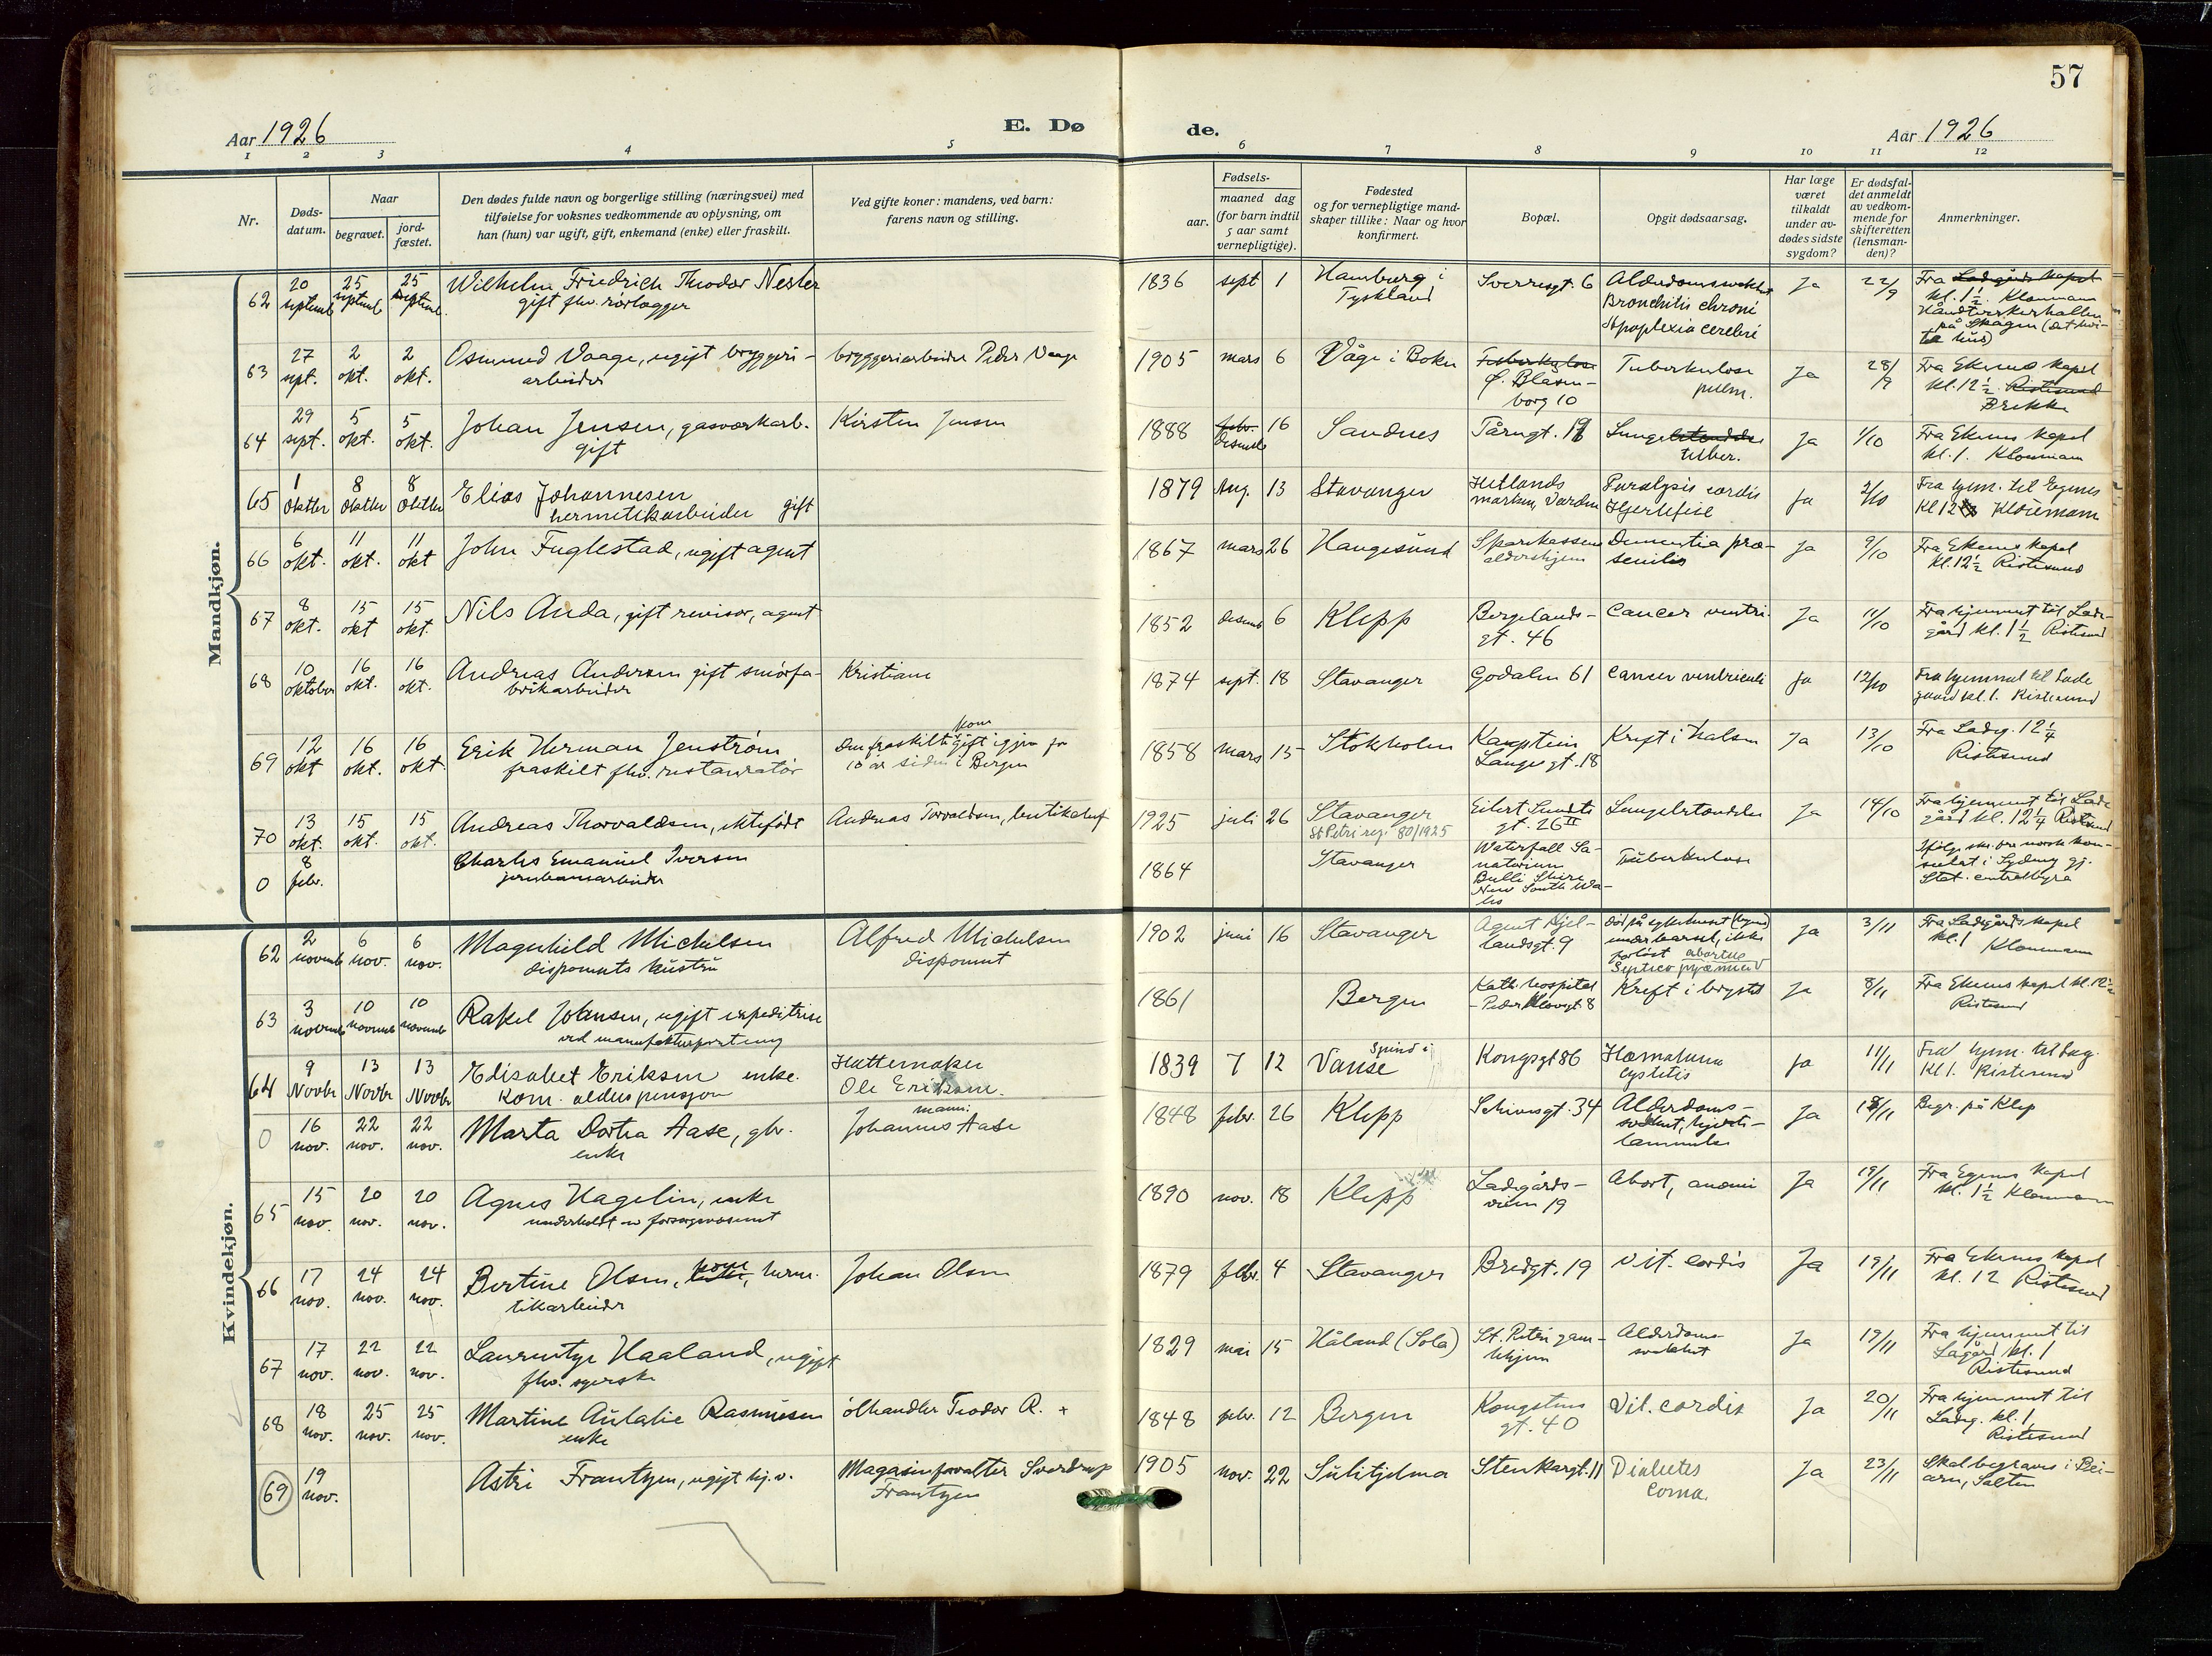 57
Aar 1926
E. Dø
de.
Aar 1926
1 2 3 4 5 6 7 8 9 10 11 12
Nr.
Døds-
datum.
Naar
begravet.
jord-
fæstet.
Den dødes fulde navn og borgerlige stilling (næringsvei) med
tilføielse for voksnes vedkommende av oplysning, om
han (hun) var ugift, gift, enkemand (enke) eller fraskilt.
Ved gifte koner: mandens, ved barn:
farens navn og stilling.
Fødsels-
aar.
maaned dag
(for barn indtil
5 aar samt
vernepligtige).
Fødested
og for vernepligtige mand-
skaper tillike: Naar og hvor
konfirmert.
Bopæl.
Opgit dødsaarsag.
Har læge
været
tilkaldt
under av-
dødes sidste
sygdom?
Er dødsfal-
det anmeldt
av vedkom-
mende for
skifteretten
(lensman-
den)?
Anmerkninger.
Mandkjøn.
62 20 septemb 25 septemb 25 septemb
Wilhelm Friedrich Theodor Nester
gift fhv. rørlægger
1836 sept 1 Hamburg i
Tyskland
Sverresgt. 6
Alderdomssvakhet
Bronchitis chroni
Apoplexia cerebri
Ja 22/9
Fra Ladegårds kapel
kl. 1½. Kloumann
Håndverkerhallen
på Skagen (det hvi-
te hus)
63 27 spt. 2 okt. 2 okt.
Osmund Vaage, ugift bryggeri-
arbeider
bryggeriarbeider Peder Vaage
1905 mars 6 Våge i Bokn
Tuberkulose
Ø. Blåsen-
borg 10
Tuberkulose
pulm.
Ja 28/9
Fra Ekenes kapel
kl. 12½. Ristesund
Brekke
64 29 sept. 5 okt. 5 okt.
Johan Jensen, gasværkarb.
gift
Kirsten Jensen
1888 febr. 16
Desemb
Sandnes
Tårngt.
Lungebetændelse
tuber.
Ja 1/10
Fra Ekenes kapel
kl. 1. Kloumann
65 1 Oktbr 8 Oktbr 8 Oktbr
Elias Johannesen
hermetikarbeider gift
1879 Aug. 13 Stavanger
Hetlands
marken, Varden
Paralysis cordis
Hjertefeil
Ja 2/10
Fra hjem. til Egenes
Kl 12 Kloumann
66 6 okt. 11 okt. 11 okt
John Fuglestad, ugift agent
1867 mars 26 Haugesund
Sparekassens
aldershjem
Dementia præ-
senilis
Ja 9/10
Fra Ekenes kapel
kl. 12½ Ristesund
67 8 okt. 15 okt 15 okt.
Nils Anda, gift revisor, agent
1852 desemb 6 Klepp
Bergelands-
gt. 46
Cancer ventri.
Ja 11/10
Fra hjemmet til Lade-
gård kl. 1½ Ristesund
68 10 oktober 16 okt. 16 okt.
Andreas Andersen gift smørfa-
brikarbeider
Kristiane
1874 sept. 18 Stavanger
Godalen 61
Cancer ventriculi
Ja 12/10
Fra hjemmet til Lade
gaard kl. 1. Ristesund
69 12 okt 16 okt. 16 okt.
Erik Herman Jenström
fraskilt fhv. restauratør
Den fraskilte kone gift igjen for
10 år siden i Bergen
1858 mars 15 Stokholm
Kaptein
Langes gt. 18
Kreft i halsen
Ja 13/10
Fra Ladeg. 12¼
Ristesund
70 13 okt. 15 okt. 15 okt.
Andreas Thorvaldsen, ektefødt
Andreas Torvaldsen,
1925 juli 26 Stavanger
St Petri reg. 80/1925
Eilert Sundts
gt. 26 II
Lungebetændelse
Ja 14/10
Fra hjemmet til Lade
gård kl. 12¼ Ristesund
0 8 febr.
Charles Emanuel Iversen
jernbanearbeider
1864 Stavanger
Waterfall Sa-
natorium
Bulli Shire
New South Wa-
les
Tuberkulose
Ifølge skr. fra norsk kon-
sulat i Sydney gj.
Stat. centralbyrå
Kvindekjøn.
62 2 novemb 6 nov. 6 nov.
Magnhild Michelsen
disponents hustru
Alfred Michelsen
disponent
1902 juni 16 Stavanger
Agent Kjel-
landsgt. 9
død på sykehuset
under barsel, ikke
forløst abortus
Septico pyæmi
Ja 3/11
Fra Ladegårds kapel
kl. 1
Kloumann
63 3 novemb 10 novemb 10 novemb
Rakel Johnsen, ugift expeditrise
ved manufakturforretning
1861 Bergen
Kath. hospital
- Peder Klowgt 8
Kreft i brystet
Ja 8/11
Fra Ekenes kapel kl. 12½
Ristesund
64 9 Novbr 13 Novbr 13 Novbr
Elisabet Eriksen enke.
Kom. alderspensjon
Hattemaker
Ole Eriksen.
1839 7 12 Spind i
Vanse
Kongsgt 86
Hæmaturia
cystitis
Ja 11/11
Fra hjem. til Lag.
Kl 1. Ristesund
0 16 nov. 22 nov. 22 nov.
Marta Dortea Aase, gbr.
enke
Johannes Aase
1848 febr. 26 Klepp
Schivesgt. 34
Alderdoms-
svakhet, hjerte-
lammelse
Ja 18/11
Begr. på Klep
65 15 nov. 20 nov. 20 nov.
Agnes Hagelin, enke
underholdt av forsorgsvæsenet
1890 nov. 18 Klepp
Ladegårds-
veien 19
Abort, anæmi
Ja 19/11
Fra Egenes kapel
kl. 1½ Kloumann
66 17 nov. 24 nov. 24 nov.
Bertine Olsen, kone, herme-
tikarbeider
Johan Olsen
1879 febr. 4 Stavanger
Bredgt. 19
vit. cordis
Ja 19/11
Fra Ekenes kapel
kl. 12 Ristesund
67 17 nov. 22 nov. 22 nov.
Laurentze Haaland, ugift
fhv. syerske
1829 mai 15 Håland (Sola)
St. Petri gam-
lehjem
Alderdoms-
svakhet
Ja 19/11
Fra hjemmet til
Lagård kl. 1
Ristesund
68 18 nov. 25 nov. 25 nov.
Martine Aulalie Rasmussen
enke
ølhandler Teodor R. +
1848 febr. 12 Bergen
Kongstens
gt. 40
Vit. cordis
Ja 20/11
Fra hjemmet til
Ladeg. kl. 1
Ristesund
69 19 nov.
Astri Frantzen, ugift hj. v.
Magasinforvalter Sverdrup
Frantzen
1905 nov. 22 Sulitjelma
Stenkargt. 11
Diabetes
Coma.
Ja 23/11
Skal begraves i Bei-
arn, Salten